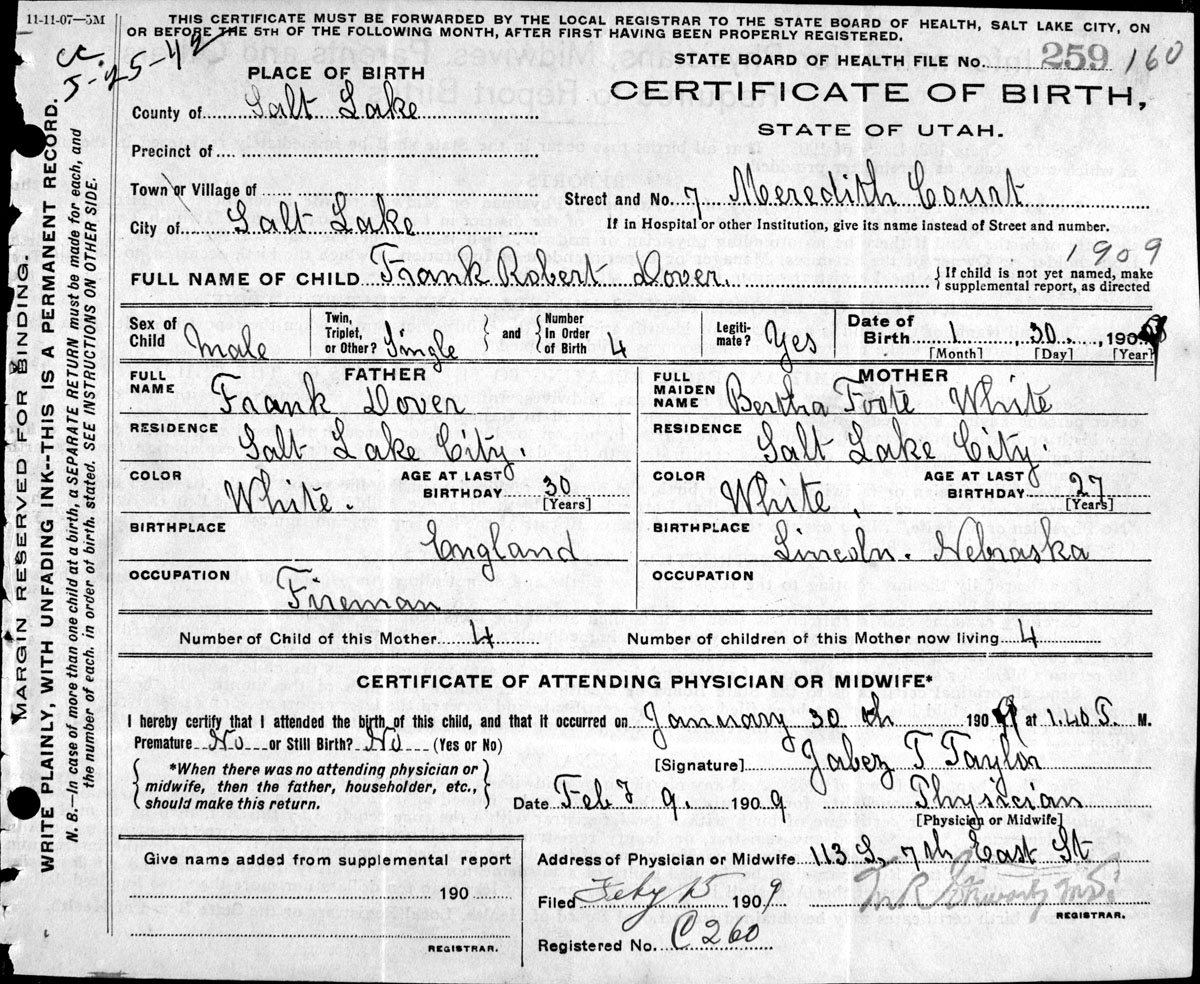 11-11-07—5M
THIS CERTIFICATE MUST BE FORWARDED BY THE LOCAL REGISTRAR TO THE STATE BOARD OF HEALTH, SALT LAKE CITY, ON
OR BEFORE THE 5TH OF THE FOLLOWING MONTH, AFTER FIRST HAVING BEEN PROPERLY REGISTERED.
cc. 5-25-42
STATE BOARD OF HEALTH FILE No. 259 160
PLACE OF BIRTH
CERTIFICATE OF BIRTH,
STATE OF UTAH.
County of Salt Lake
Precinct of
Town or Village of
Street and No. 7 Meredith Court
City of Salt Lake
If in Hospital or other Institution, give its name instead of Street and number.
1909
FULL NAME OF CHILD Frank Robert Dover. { If child is not yet named, make supplemental report, as directed
Sex of Child Male
Twin, Triplet, or Other? Single } and { Number In Order of Birth 4
Legiti-mate? Yes
Date of Birth 1 30 1909
[Month] [Day] [Year]
FATHER
MOTHER
FULL NAME Frank Dover
FULL MAIDEN NAME Bertha Foote White
RESIDENCE Salt Lake City.
RESIDENCE Salt Lake City.
COLOR White. AGE AT LAST BIRTHDAY 30 [Years]
COLOR White. AGE AT LAST BIRTHDAY 27 [Years]
BIRTHPLACE England
BIRTHPLACE Lincoln. Nebraska
OCCUPATION Fireman
OCCUPATION
Number of Child of this Mother 4
Number of children of this Mother now living 4
CERTIFICATE OF ATTENDING PHYSICIAN OR MIDWIFE*
I hereby certify that I attended the birth of this child, and that it occurred on January 30th 1909 at 1.40 P. M.
Premature No or Still Birth? No (Yes or No)
{ *When there was no attending physician or midwife, then the father, householder, etc., should make this return. }
[Signature] Jabez T Taylor
Date Feby 9. 1909 Physician
[Physician or Midwife]
Give name added from supplemental report
190
REGISTRAR.
Address of Physician or Midwife 113 S. 7th East St
Filed Feby 15 1909
REGISTRAR.
Registered No. C260
MARGIN RESERVED FOR BINDING.
WRITE PLAINLY, WITH UNFADING INK--THIS IS A PERMANENT RECORD.
N. B.—In case of more than one child at a birth, a SEPARATE RETURN must be made for each, and
the number of each, in order of birth, stated. SEE INSTRUCTIONS ON OTHER SIDE.